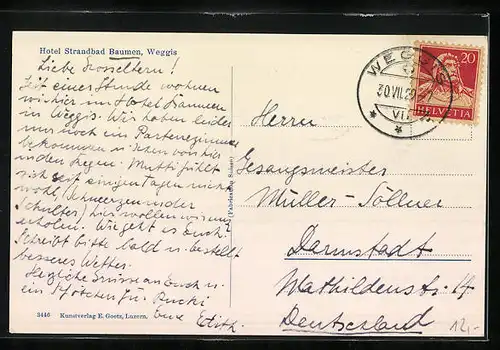 Hotel Strandbad Baumen, Weggis
Liebe Grosseltern!
Seit einer Stunde wohnen
wir hier im Hotel Baumen
in Weggis. Wir haben leider
nur noch ein Parterrezimmer
bekommen u. sehen von hier
in den Regen. Mutti fühlt
sich seit einigen Tagen nicht
wohl (Schmerzen in der
Schulter) hier wollen wir uns
erholen. Wie geht es Euch?
Schreibt bitte bald u. bestellt
besseres Wetter.
Herzliche Grüsse an Euch u.
ein Pfötchen für
Eure Edith.
3446 Kunstverlag E. Goetz, Luzern.
WEGGIS
30.VII.29
VII
20
HELVETIA
Herrn
Gesangsmeister
Müller-Söllner
Darmstadt
Mathildenstr.
Deutschland
12,-